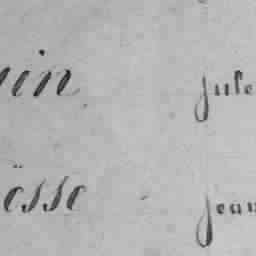 uin jule
ësse jean